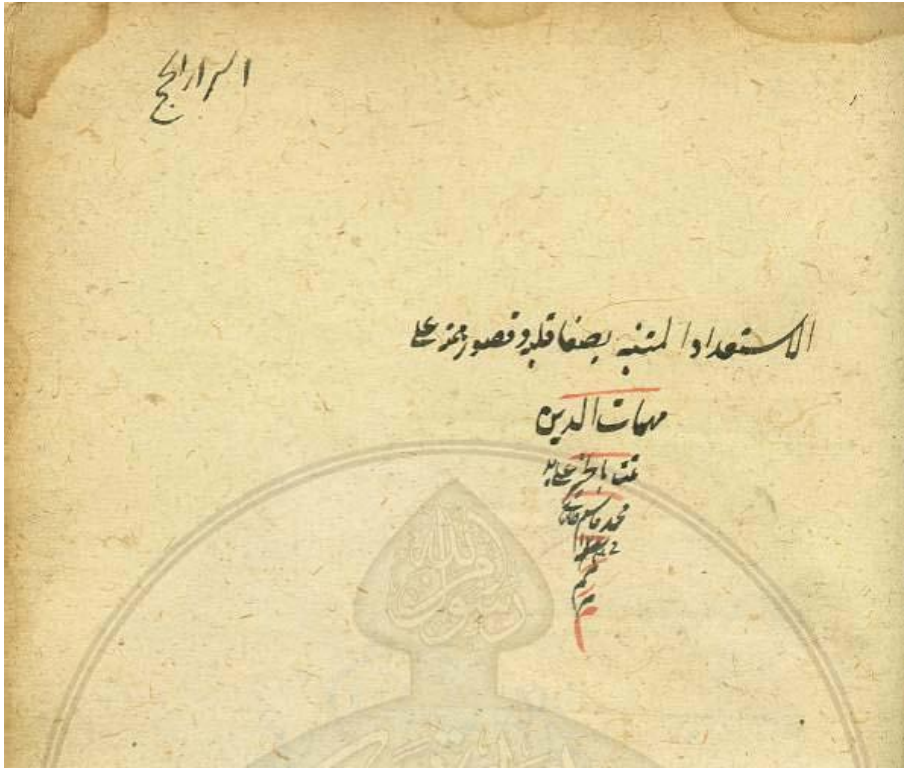 اسرار الحج
الاستعداد المتنبه بصفا قلبه وقصور همته على
مهمات الدين
تمت بالخير على يد
محمد قاسم